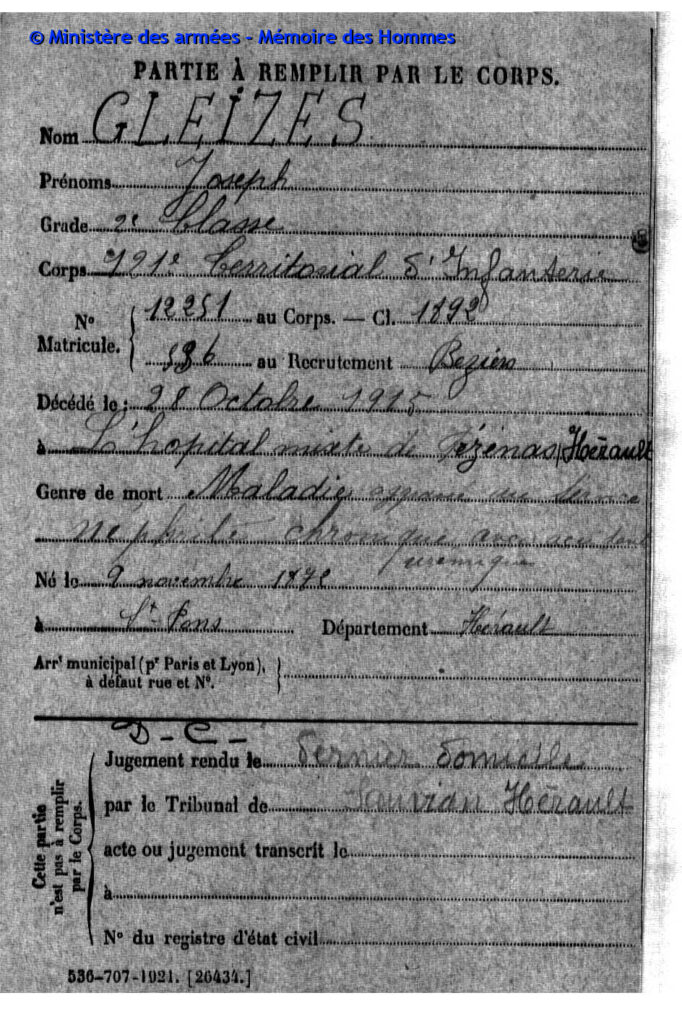 © Ministère des armées - Mémoire des Hommes
PARTIE À REMPLIR PAR LE CORPS.
Nom GLEIZES
Prénoms Joseph
Grade 2e Classe
Corps 121e Territorial d'Infanterie
N° Matricule. 12251 au Corps. — Cl. 1892
536 au Recrutement Beziers
Décédé le : 28 Octobre 1915
à L'hopital mixte de Pézenas (Hérault
Genre de mort Maladie service
néphrite chronique avec
uremique
Né le 9 novembre 1872
à St Pons Département Hérault
Arrt municipal (pr Paris et Lyon),
à défaut rue et N°.
D - C -
Cette partie n'est pas à remplir par le Corps.
Jugement rendu le Dernier domicile
par le Tribunal de Hérault
acte ou jugement transcrit le
à
N° du registre d'état civil
536-707-1921. [26434.]